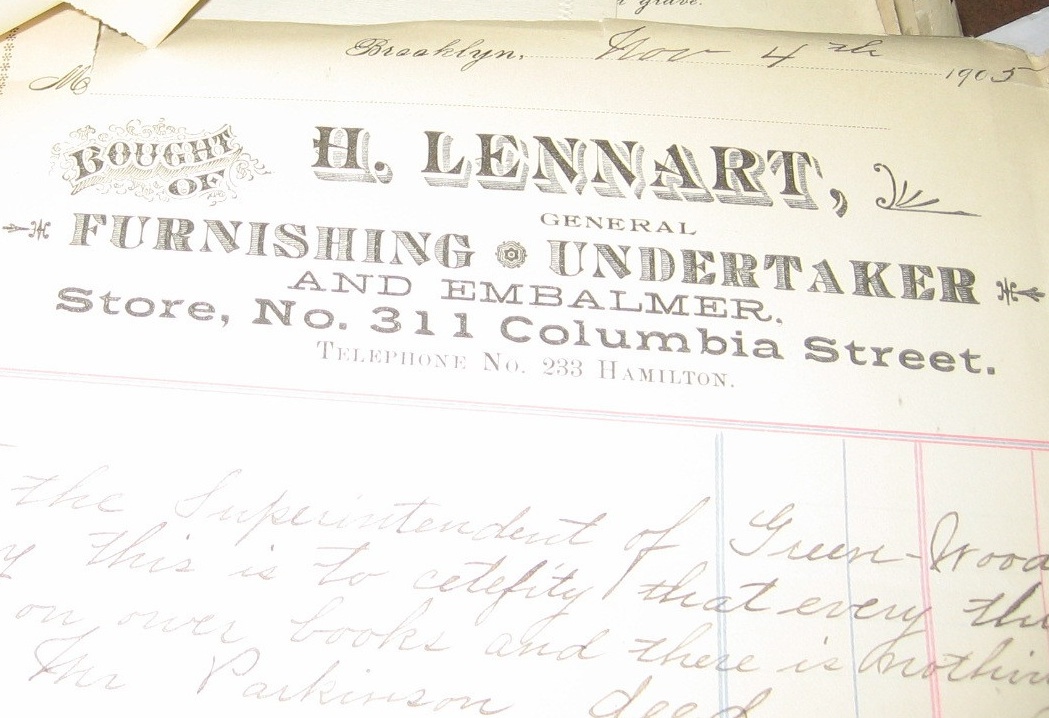 r grave.
Brooklyn, Nov 4th 1905
M
BOUGHT OF
H. LENNART,
GENERAL
FURNISHING UNDERTAKER
AND EMBALMER.
Store, No. 311 Columbia Street.
TELEPHONE No. 233 HAMILTON.
the Superintendent of Green-Wood
y this is to cetefity that every thi
on ower books and there is nothin
Mr Parkinson deed